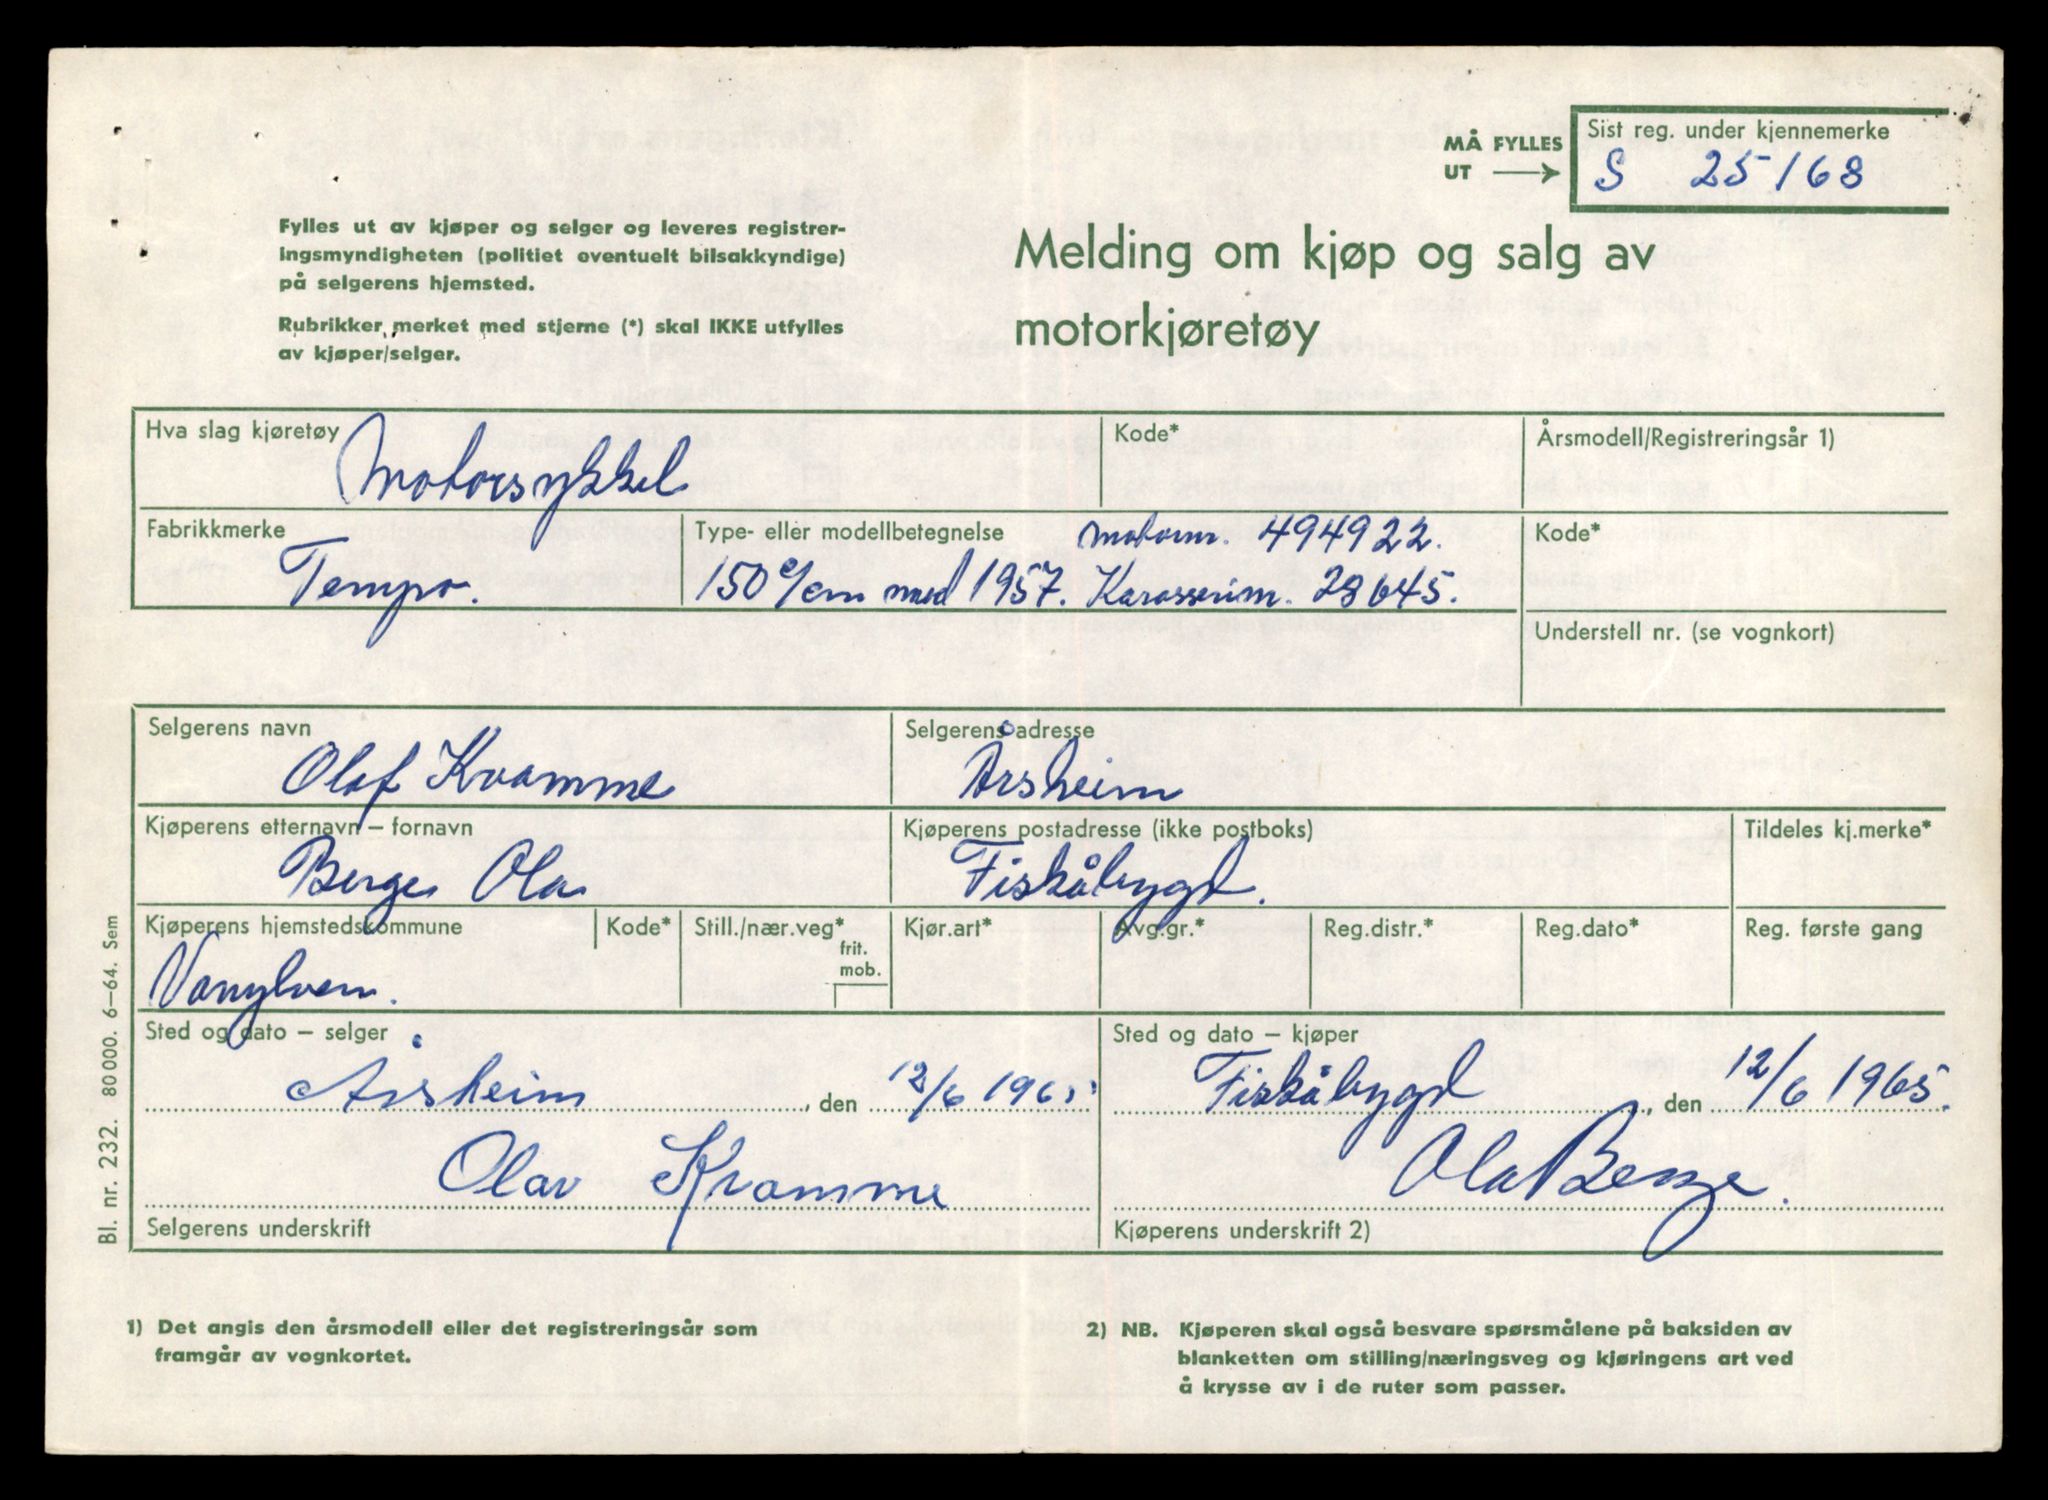 MÅ FYLLES
UT
Sist reg. under kjennemerke
S 25168
Fylles ut av kjøper og selger og leveres registrer-
ingsmyndigheten (politiet eventuelt bilsakkyndige)
på selgerens hjemsted.
Rubrikker merket med stjerne (*) skal IKKE utfylles
av kjøper/selger.
Melding om kjøp og salg av
motorkjøretøy
Hva slag kjøretøy
Motorsykkel
Kode*
Årsmodell/Registreringsår 1)
Fabrikkmerke
Tempo.
Type- eller modellbetegnelse
Motornr. 494922.
150 c/cm mod 1957. Karosserinr. 28645.
Kode*
Understell nr. (se vognkort)
Selgerens navn
Olaf Kvamme
Selgerens adresse
Årsheim
Kjøperens etternavn – fornavn
Berge Ola
Kjøperens postadresse (ikke postboks)
Fiskåbygd.
Tildeles kj.merke*
Kjøperens hjemstedskommune
Vanylven.
Kode*
Still./nær.veg*
frit.
mob.
Kjør.art*
Avg.gr.*
Reg.distr.*
Reg.dato*
Reg. første gang
Sted og dato – selger
Årsheim, den 12/6 1965
Olav Kvamme
Selgerens underskrift
Sted og dato – kjøper
Fiskåbygd, den 12/6 1965.
Ola Berge.
Kjøperens underskrift 2)
Bl. nr. 232. 80 000. 6–64. Sem
1) Det angis den årsmodell eller det registreringsår som
framgår av vognkortet.
2) NB. Kjøperen skal også besvare spørsmålene på baksiden av
blanketten om stilling/næringsveg og kjøringens art ved
å krysse av i de ruter som passer.